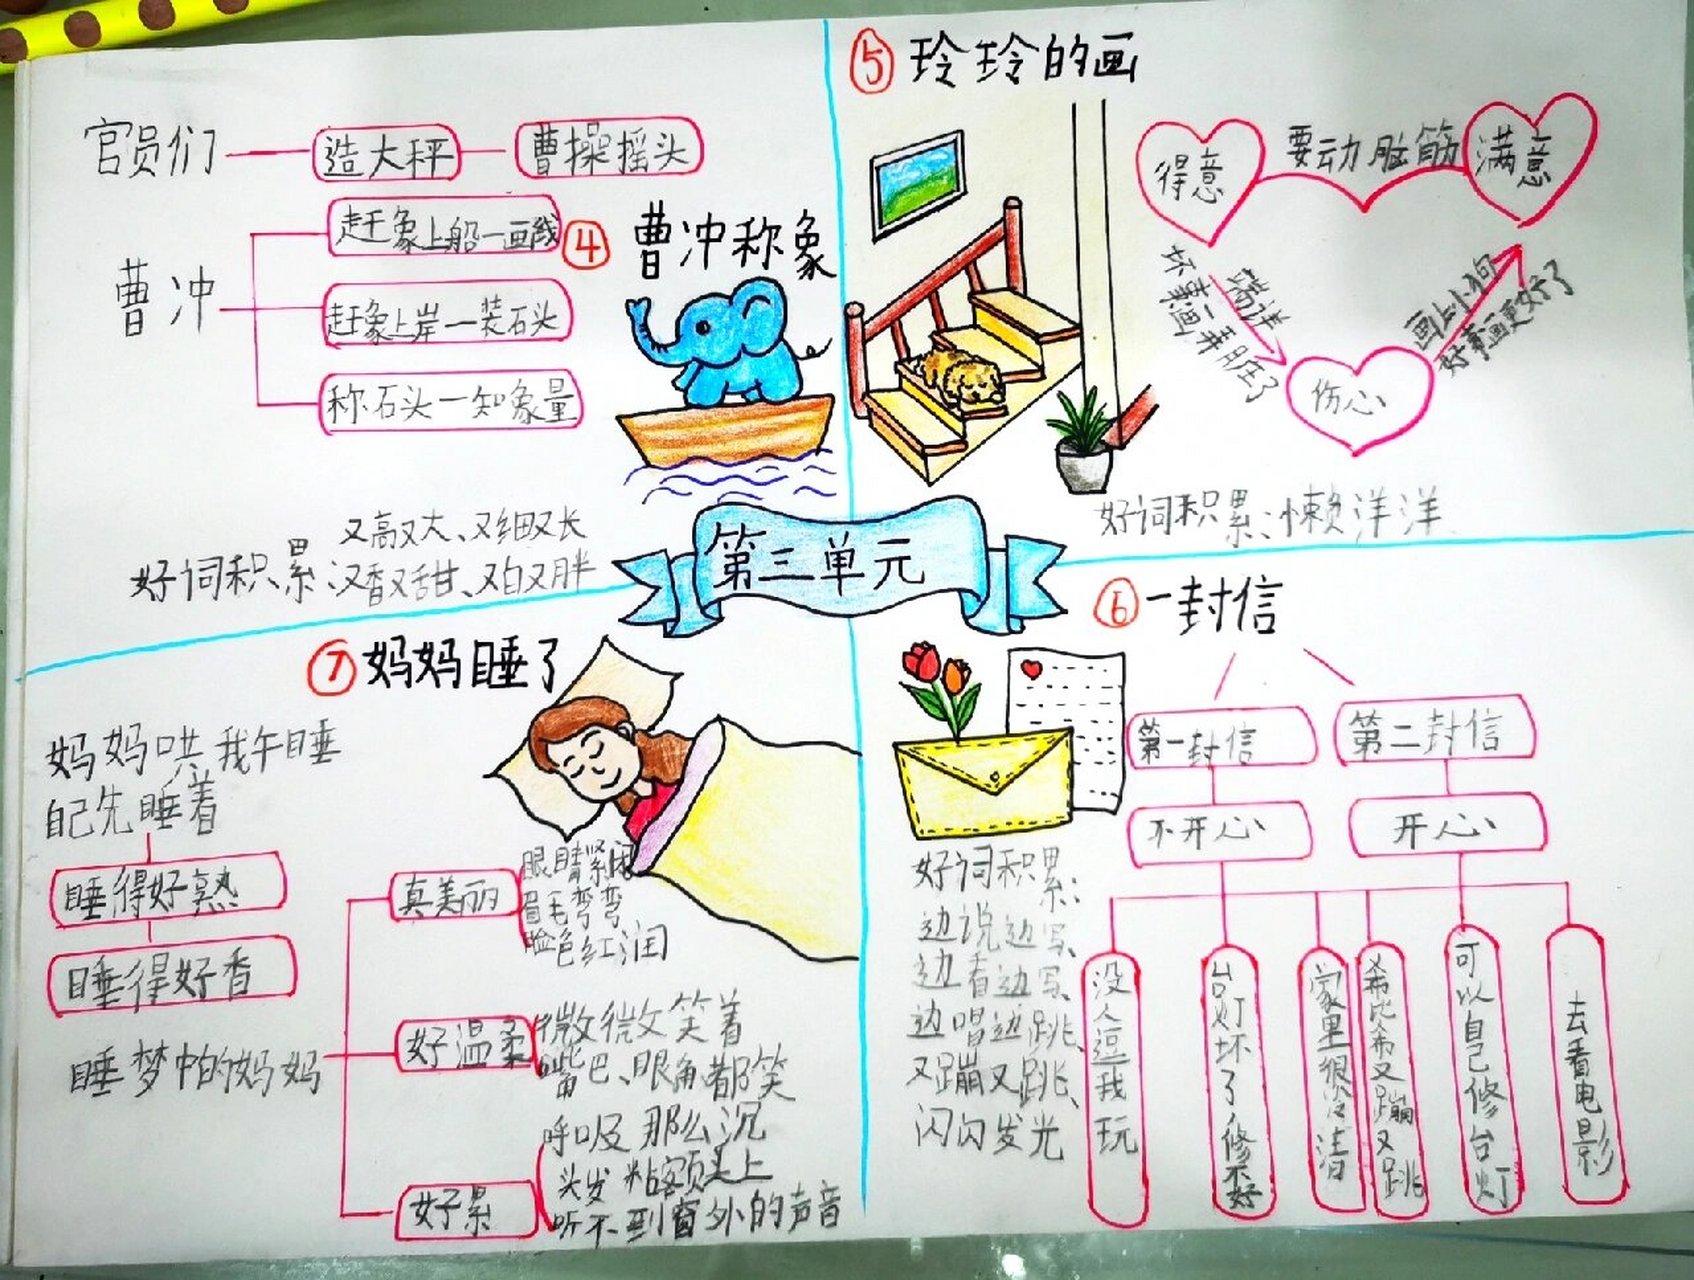 第三单元
④ 曹冲称象
官员们
造大秤
曹操摇头
曹冲
赶象上船一画线
赶象上岸一装石头
称石头一知象重
好词积累:
又高又大、又细又长
又香又甜、又白又胖
⑤ 玲玲的画
得意
要动脑筋
满意
端详
坏事画弄脏了
伤心
画上小狗
好事画更好了
好词积累:懒洋洋、
⑥ 一封信
第一封信
第二封信
不开心
开心
没人逗我玩
台灯坏了修不好
家里很冷清
希比希又蹦又跳
可以自己修台灯
去看电影
好词积累:
边说边写、
边看边写、
边唱边跳、
又蹦又跳、
闪闪发光
⑦ 妈妈睡了
妈妈哄我午睡
自己先睡着
睡得好熟
睡得好香
睡梦中的妈妈
真美丽
眼睛紧闭
眉毛弯弯
脸色红润
好温柔
微微笑着
嘴巴、眼角都笑
好累
呼吸那么沉
头发粘额头上
听不到窗外的声音